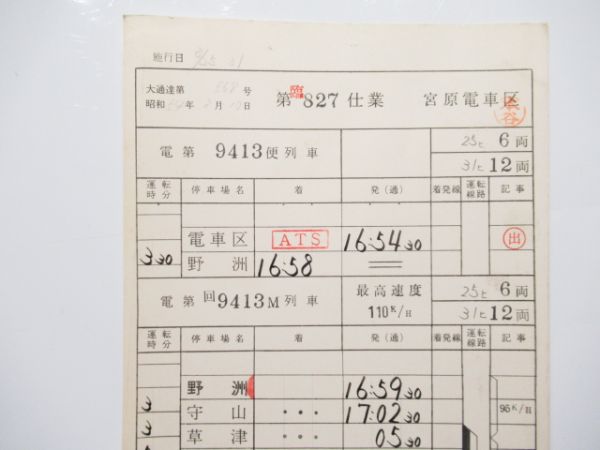 施行日
大通達第 568 号
昭和 年 月 日
第臨827仕業 宮原電車区
電第 9413便列車 25t 6両
31t 12両
運転時分 停車場名 着 発(通) 着発線 運転線路 記事
電車区 ATS 16:54 30 出
3 30 野洲 16:58 =
電第回9413M列車 最高速度 110K/H 25t 6両
31t 12両
運転時分 停車場名 着 発(通) 着発線 運転線路 記事
野洲 16:59 30
3 守山 ・・・ 17:02 30 95K/H
3 草津 ・・・ 05 30